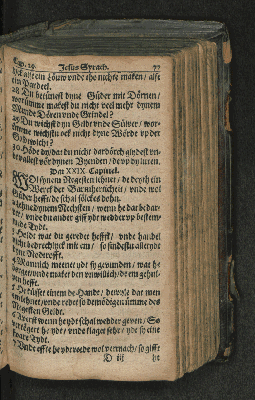 Cap. 29. Jesus Syrach. 77
alse ein Louw vnde ehe nichte maken / alse
ein Pardel.
28 Du betünest dyne Güder mit Dörnen /
worümme makest du nicht veel mehr dynem
Munde Dören vnde Grindel?
29 Du wichst dyn Geldt vnde Sülver / wor-
ümme wichstu ock nicht dyne Wörde vp der
Goltwicht?
30 Höde dy / dat du nicht dardörch glydest vn-
de vallest vör dynen Vyenden / de vp dy luren.
Dat XXIX. Capittel.
WOl synem Negesten lehnet / de deyth ein
Werck der Barmherticheit / vnde wol
Güder hefft / de schal sölckes dohn.
Lehne dynem Negesten / wenn he dar bedar-
ff / vnde du ander giff ydt wedder tho bestem-
der Tydt.
3 Holdt wat du geredet hefft / vnde handel
nicht bedrechlyck mit em / so findestu alle tydt
dyne Nodtrofft.
4 Mannich meenet ydt sy gevunden / wat he
borget vnde maket den vnwillich / de em gehul-
pen hefft.
5 He küsset einem de Hande / dewyle dat men
em lehnet / vnde redet so demödigen ümme des
Negesten Geldt.
6 Averst wenn he ydt schal wedder geven / So
vortöget he ydt / vnde klaget sehr / ydt sy eine
schwere Tydt.
7 Vnde efft he ydt rede wol vermach / so gifft
D iij he